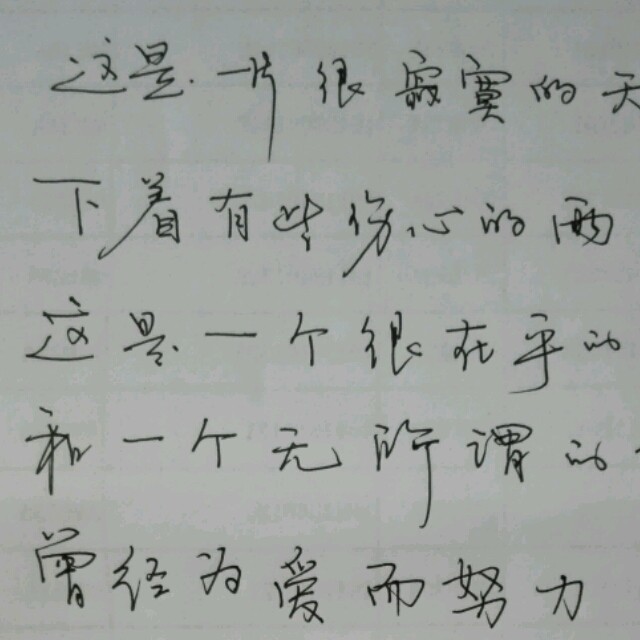 这是一片很寂寞的天
下着有些伤心的雨
这是一个很在乎的
和一个无所谓的
曾经为爱而努力